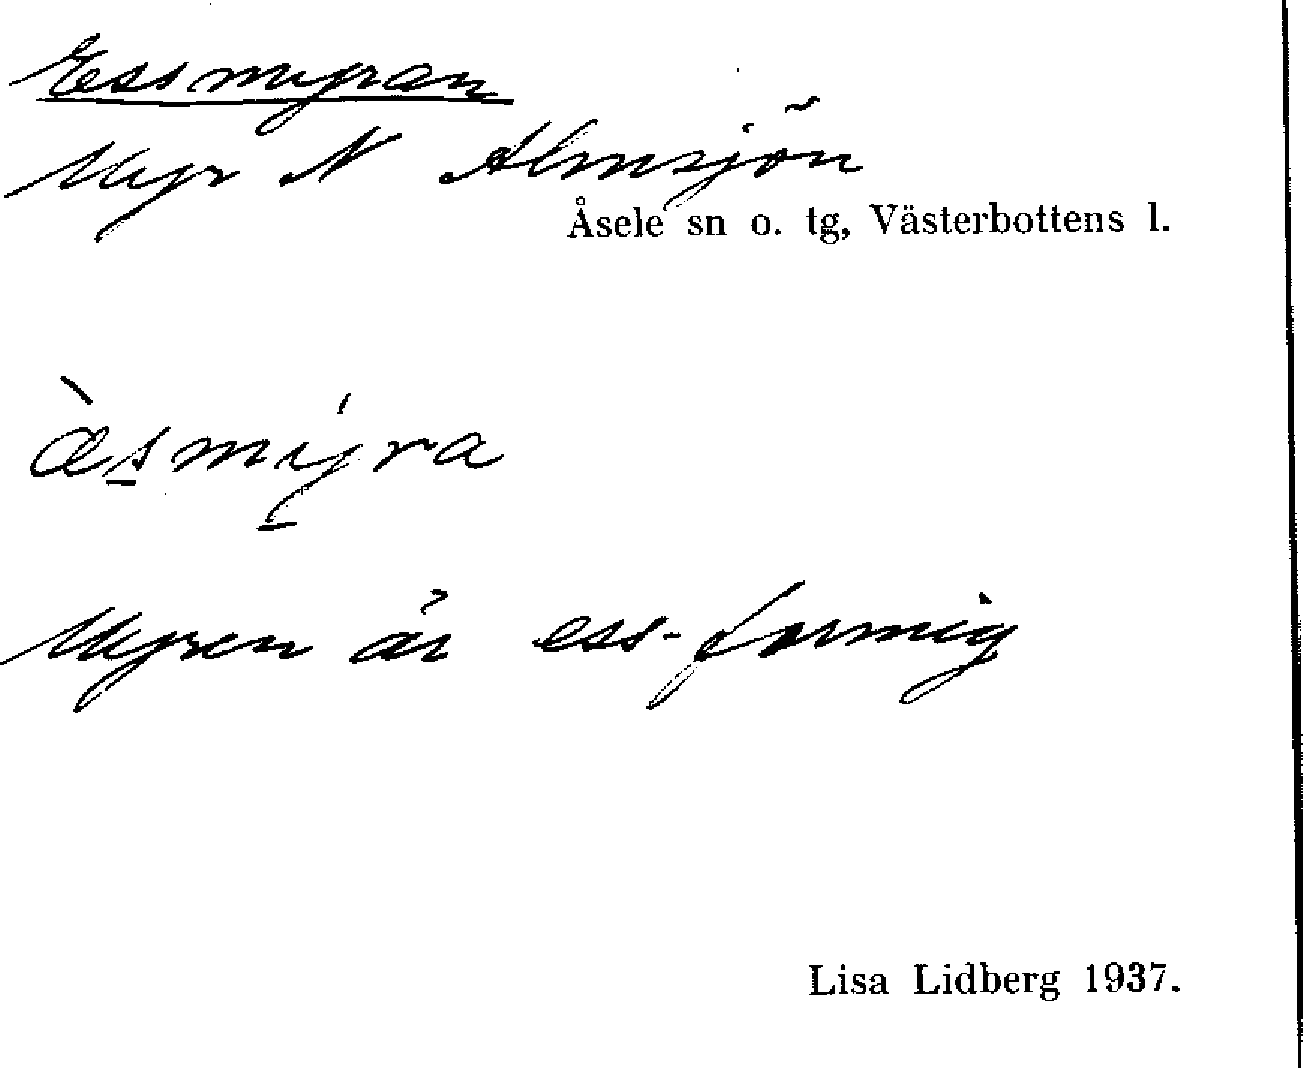 Essmyran
Myr N Almsjön
Åsele sn o. tg, Västerbottens l.
æ̀smýra
Myren är ess-formig
Lisa Lidberg 1937.